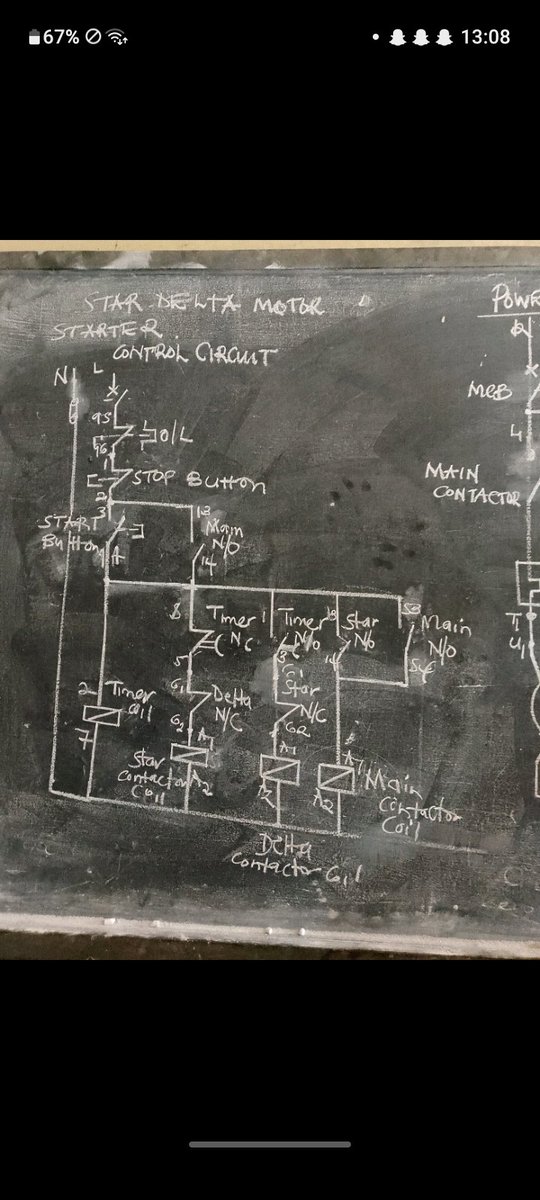 67%
13:08
STAR DELTA MOTOR
STARTER
CONTROL CIRCUIT
POWE
N L
95
O/L
96
1
STOP Button
2
3
START
Button
4
13
Main
N/O
14
MCB
MAIN
CONTACTOR
8
Timer
N/C
5
Timer
N/O
Star
N/O
53
Main
N/O
54
61
Delta
N/C
62
61
Star
N/C
62
2
Timer
Coil
7
A1
Star
Contactor
Coil
A2
A1
A2
Delta
Contactor Coil
A1
A2
Main
Contactor
Coil